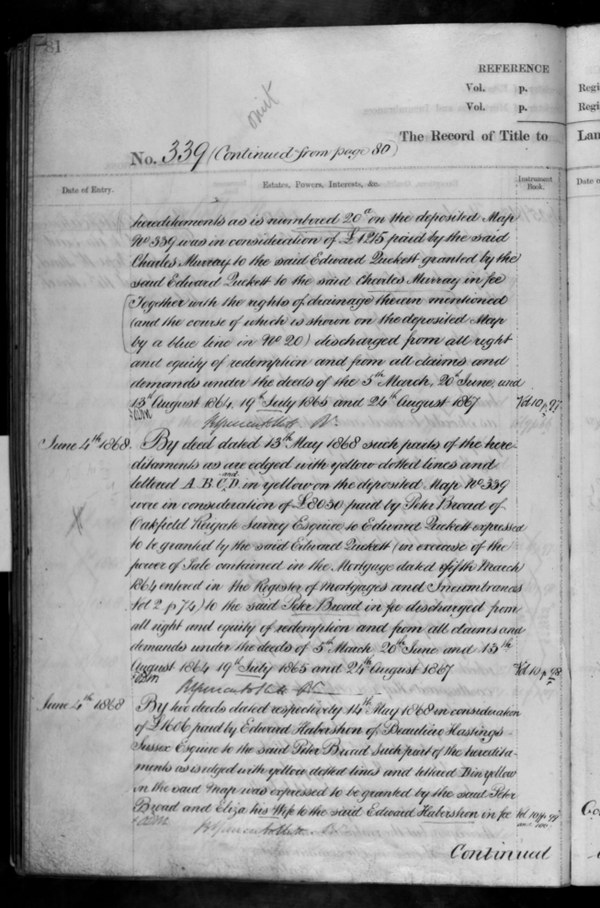 81
REFERENCE
Vol. p.
Vol. p. Regi
Regi
omit
The Record of Title to Lan
No. 339 (Continued from page 80)
Date of Entry. Estates, Powers, Interests, &c. Instrument Book. Date o
hereditaments as is numbered 20a on the deposited Map
No 339 was in consideration of £1215 paid by the said
Charles Murray to the said Edward Puckett granted by the
said Edward Puckett to the said Charles Murray in fee
Together with the rights of drainage therein mentioned
(and the course of which is shown on the deposited Map
by a blue line in No 20) discharged from all right
and equity of redemption and from all claims and
demands under the deeds of the 5th March, 20th June, and
13th August 1864, 19th July 1865 and 24th August 1867 Vol 10 p. 97
June 4th 1868. By deed dated 13th May 1868 such parts of the here-
ditaments as are edged with yellow dotted lines and
lettered A. B. C. and D. in yellow on the deposited Map No 339
were in consideration of £3030 paid by Peter Broad of
Oakfield Reigate Surrey Esquire to Edward Puckett expressed
to be granted by the said Edward Puckett (in exercise of the
power of Sale contained in the Mortgage dated fifth March
1864 entered in the Register of Mortgages and Incumbrances
Vol 2. p 74) to the said Peter Broad in fee discharged from
all right and equity of redemption and from all claims and
demands under the deeds of 5th March, 20th June and 13th
August 1864 19th July 1865 and 24th August 1867 Vol 10 p. 98
June 4th 1868 By two deeds dated respectively 14th May 1868 in consideration
of £1606 paid by Edward Habershon of Hastings
Sussex Esquire to the said Peter Broad Such part of the heredita-
ments as is edged with yellow dotted lines and lettered D in yellow
in the said map was expressed to be granted by the said Peter
Broad and Eliza his Wife to the said Edward Habershon in fee Vol 10 p. 99
and 100
Continued